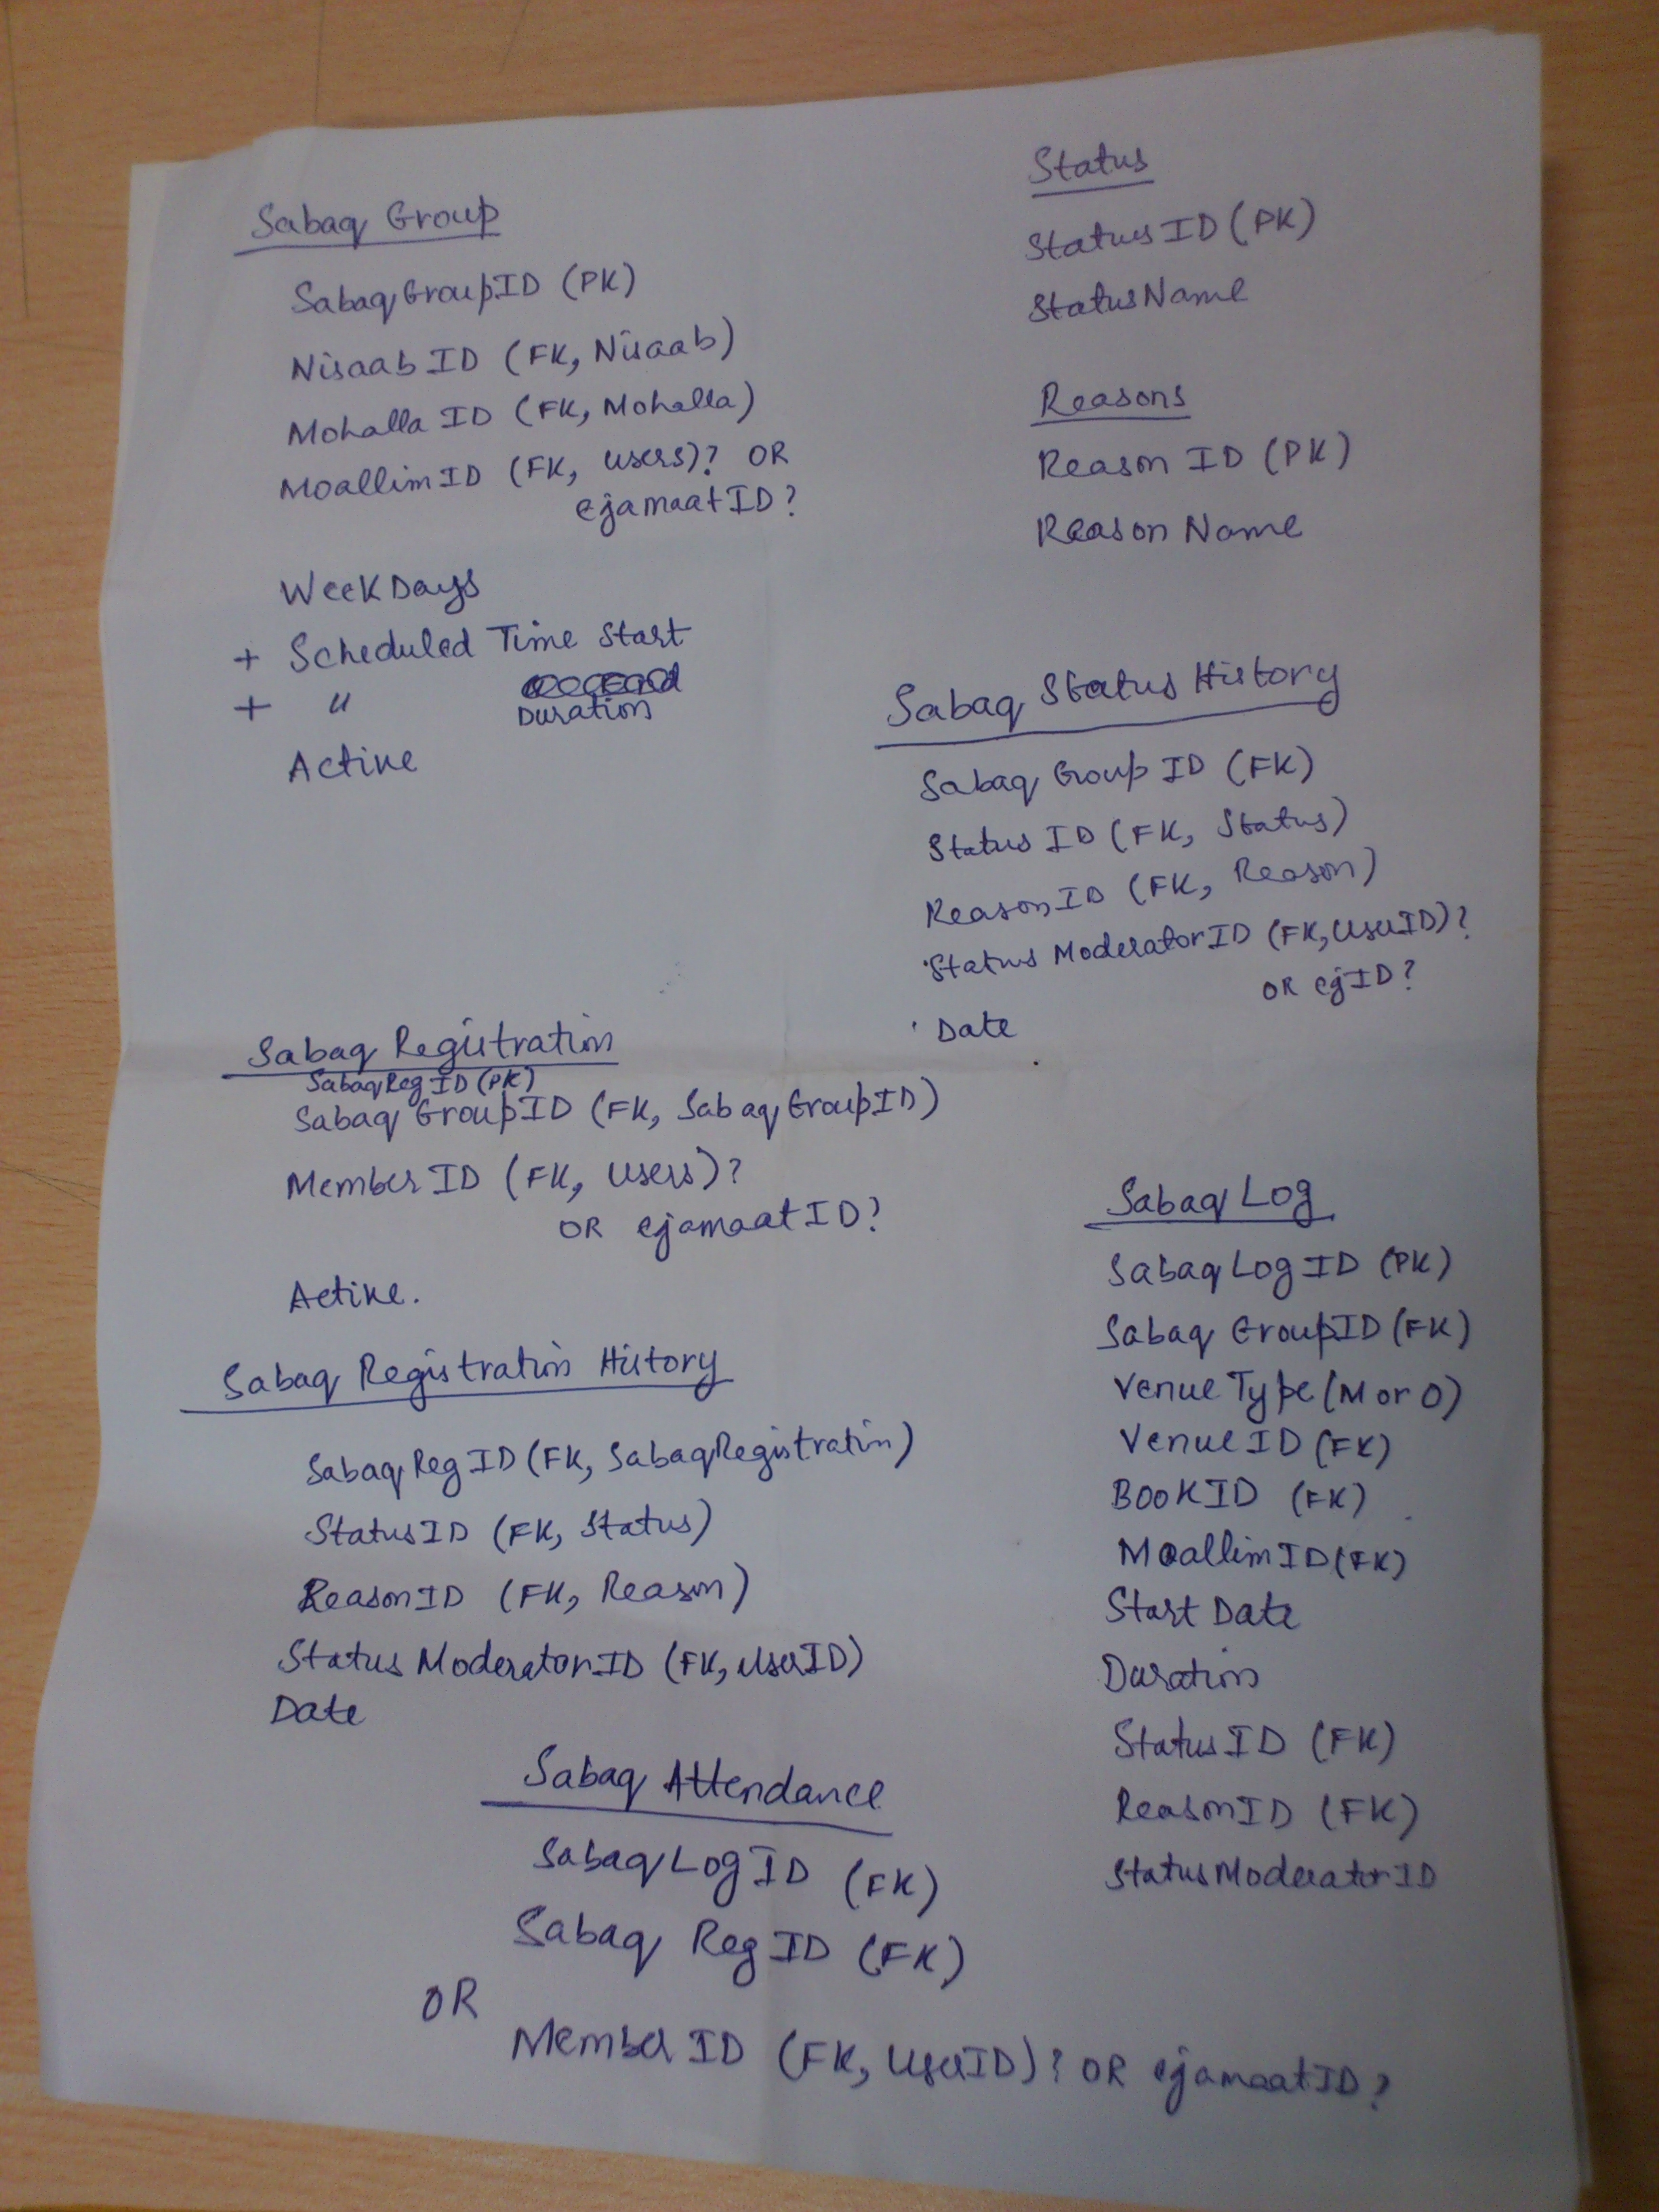 Sabaq Group
SabaqGroupID (PK)
Nisaab ID (FK, Nisaab)
Mohalla ID (FK, Mohalla)
Moallim ID (FK, users)? OR
ejamaatID?
WeekDays
+ Scheduled Time Start
+ " Duration
Active
Status
Status ID (PK)
Status Name
Reasons
Reason ID (PK)
Reason Name
Sabaq Status History
Sabaq Group ID (FK)
Status ID (FK, Status)
ReasonID (FK, Reason)
Status ModeratorID (FK, UserID)?
OR ejID?
Date
Sabaq Registration
SabaqReg ID (PK)
Sabaq GroupID (FK, SabaqGroupID)
Member ID (FK, Users)?
OR ejamaatID?
Active.
Sabaq Registration History
SabaqRegID (FK, SabaqRegistration)
StatusID (FK, Status)
ReasonID (FK, Reason)
Status ModeratorID (FK, UserID)
Date
Sabaq Log
SabaqLogID (PK)
Sabaq GroupID (FK)
Venue Type (M or O)
Venue ID (FK)
BookID (FK)
MoallimID (FK)
Start Date
Duration
Status ID (FK)
ReasonID (FK)
StatusModeratorID
Sabaq Attendance
SabaqLogID (FK)
Sabaq RegID (FK)
OR
Member ID (FK, UserID)? OR ejamaatID?